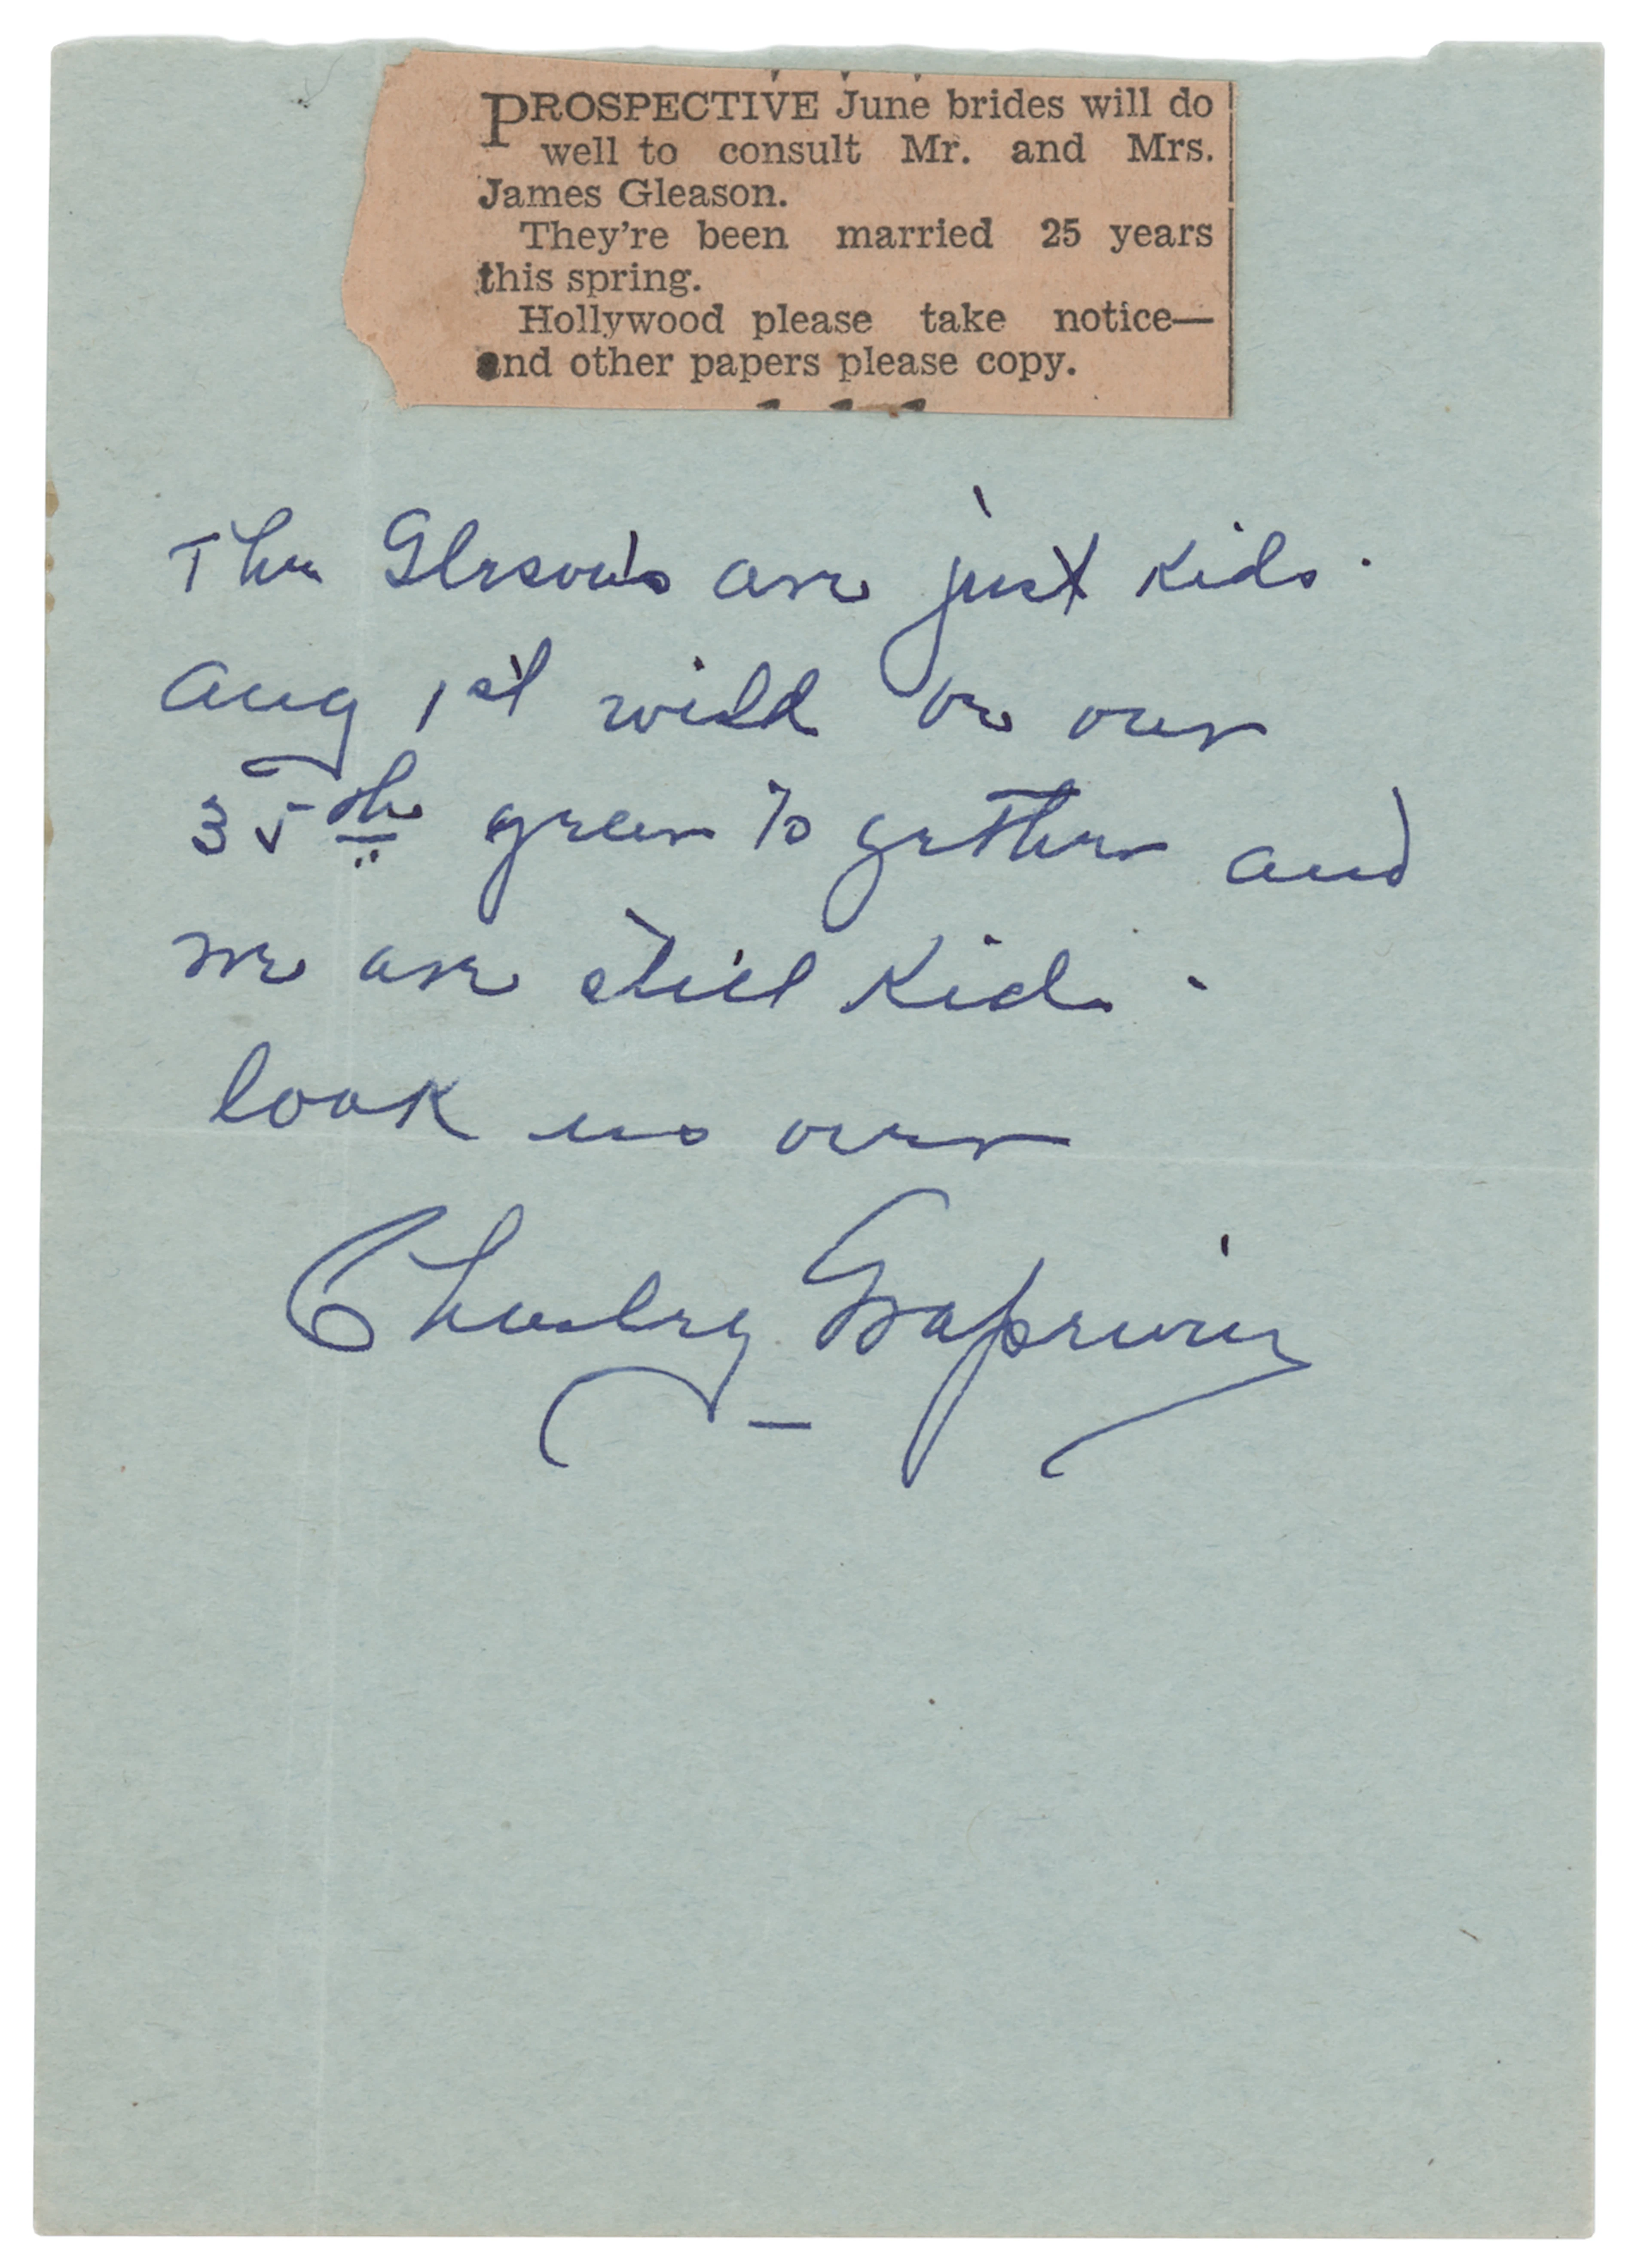 PROSPECTIVE June brides will do
well to consult Mr. and Mrs.
James Gleason.
They're been married 25 years
this spring.
Hollywood please take notice—
and other papers please copy.
The Gleson's are just kids.
Aug 1st will be our
35th year together and
we are still kids.
look us over
Charley Grapewin